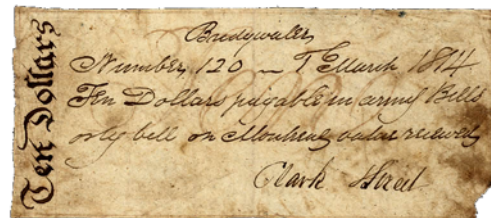 Ten Dollars
Bridgwater
Number 120 March 1814
Ten Dollars payable in army Bills
only bill on Montreal value received
Clark Street